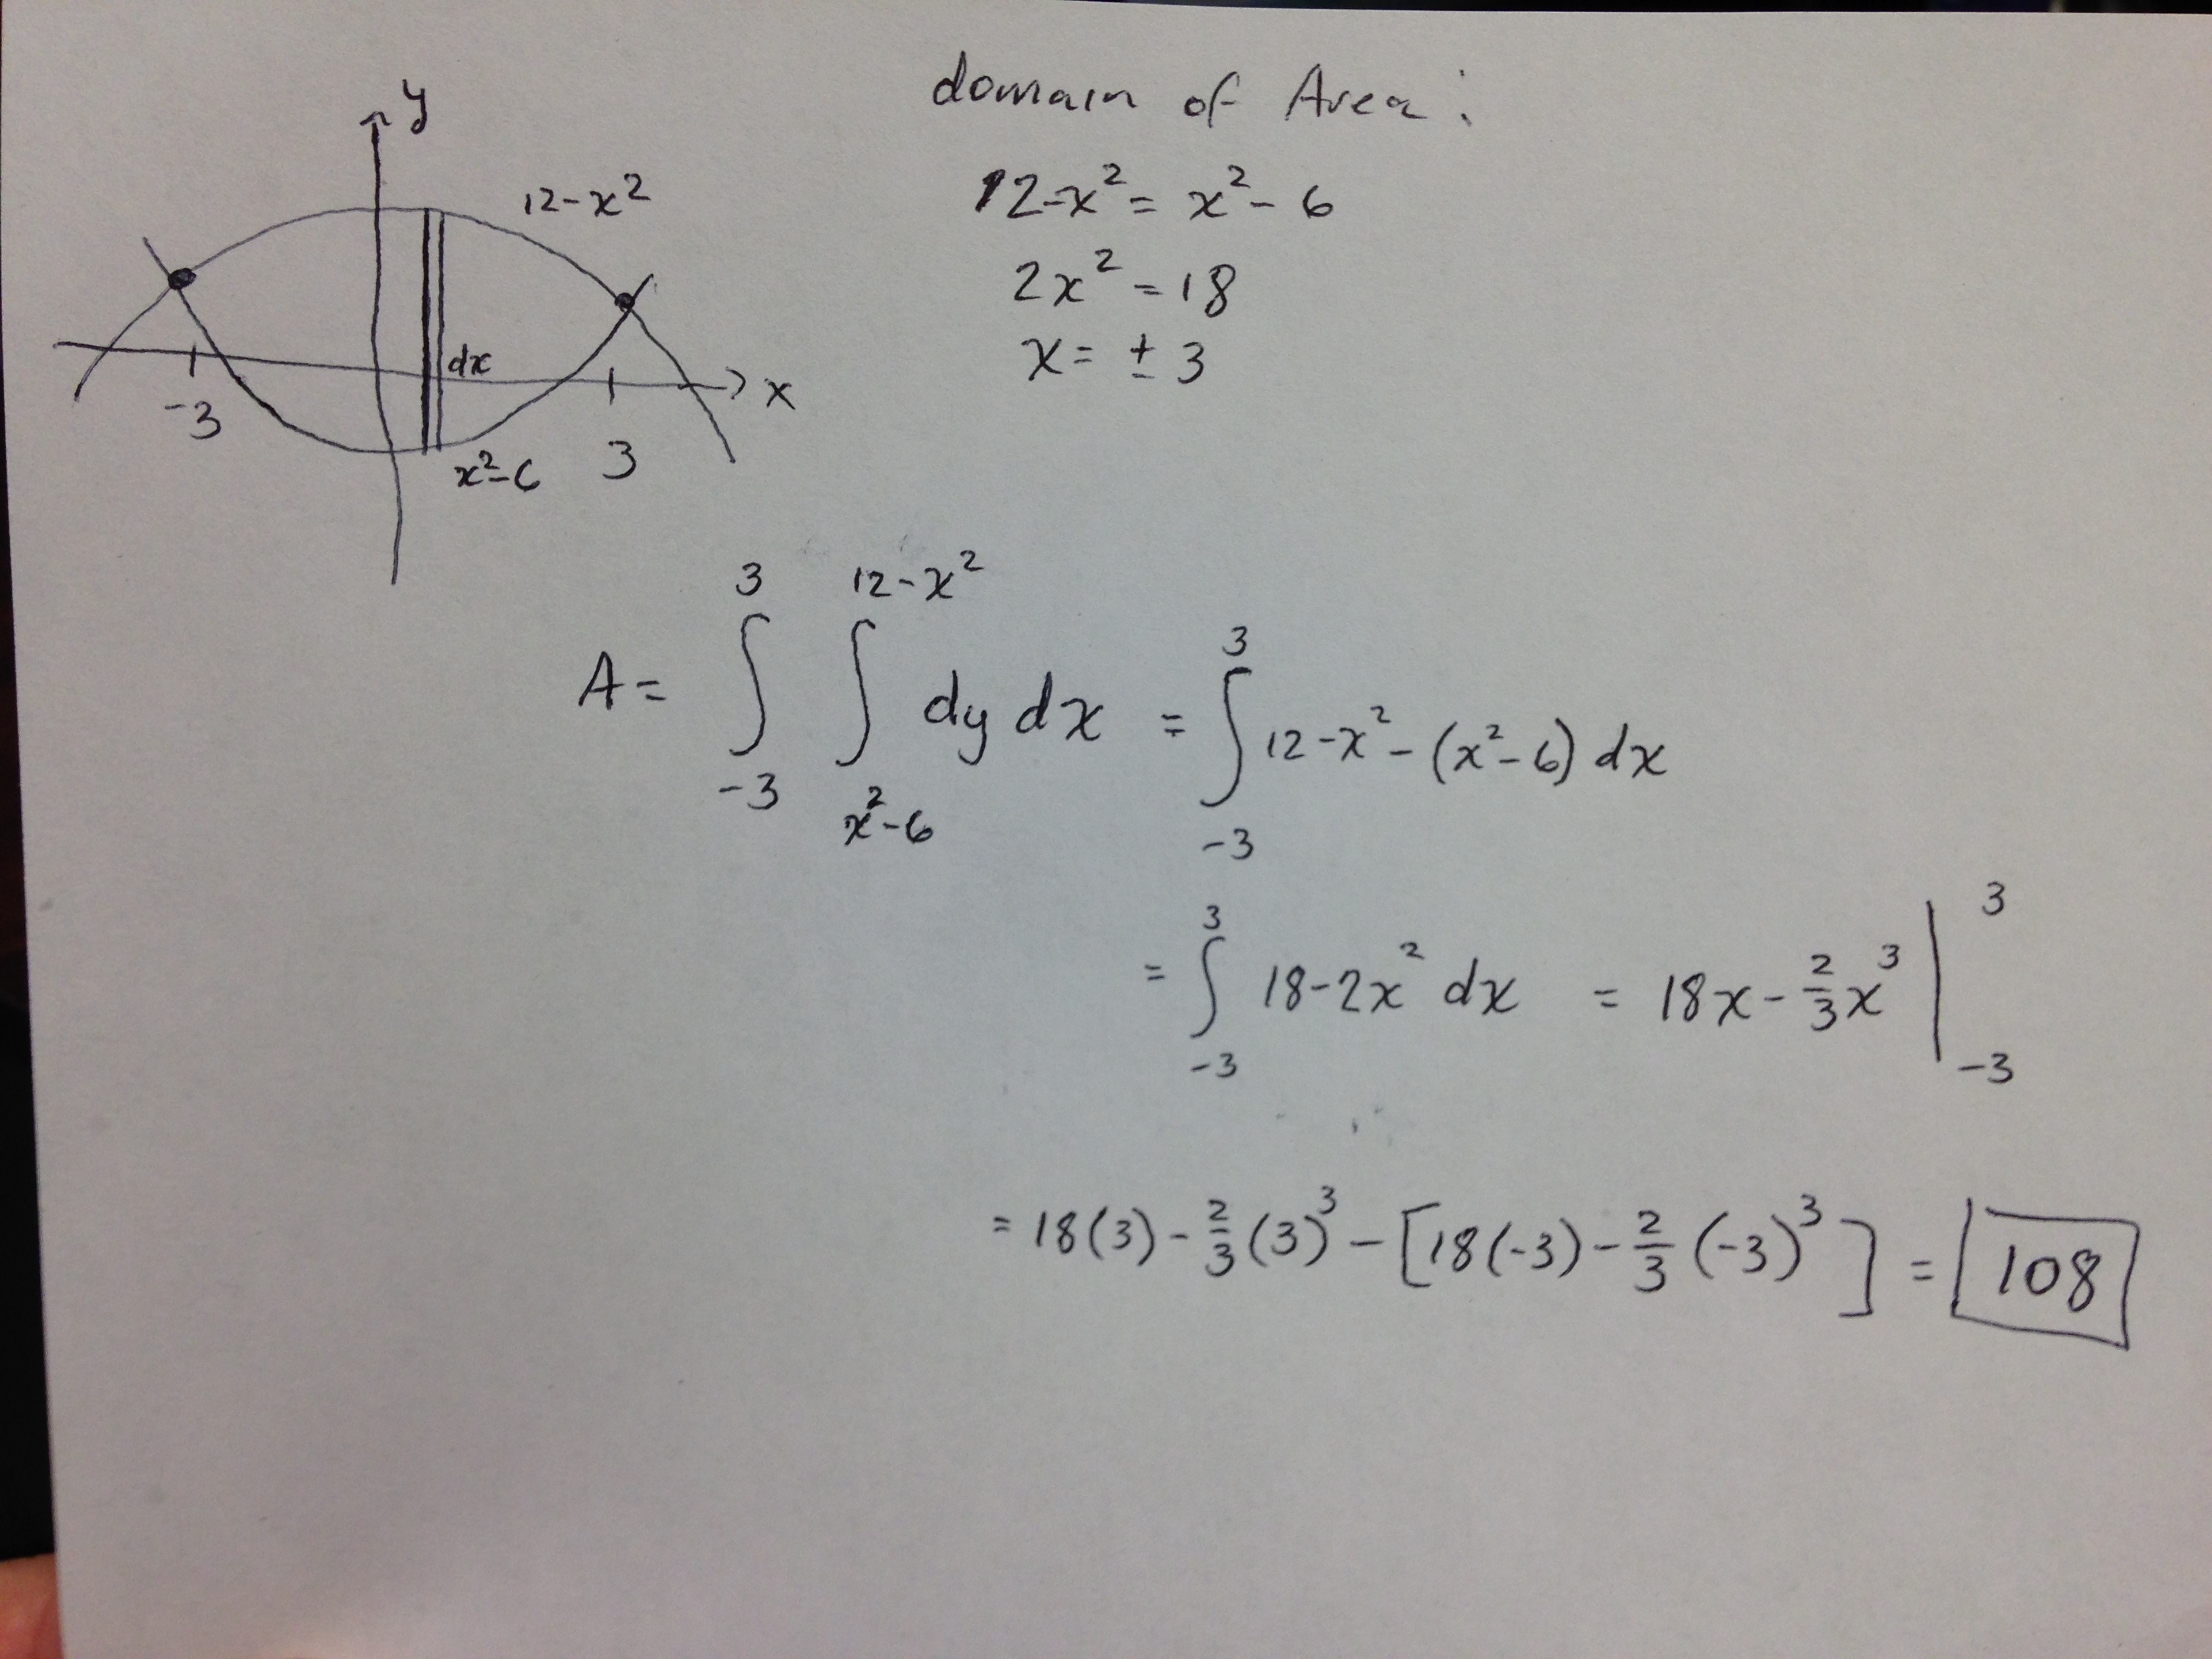 y
12-x²
dx
x
-3
3
x²-6
domain of Area:
12-x² = x²-6
2x² = 18
x = ±3
A = ∫_{-3}^{3} ∫_{x²-6}^{12-x²} dy dx = ∫_{-3}^{3} 12-x²-(x²-6) dx
= ∫_{-3}^{3} 18-2x² dx = 18x - 2/3 x³ |_{-3}^{3}
= 18(3) - 2/3 (3)³ - [18(-3) - 2/3 (-3)³] = 108